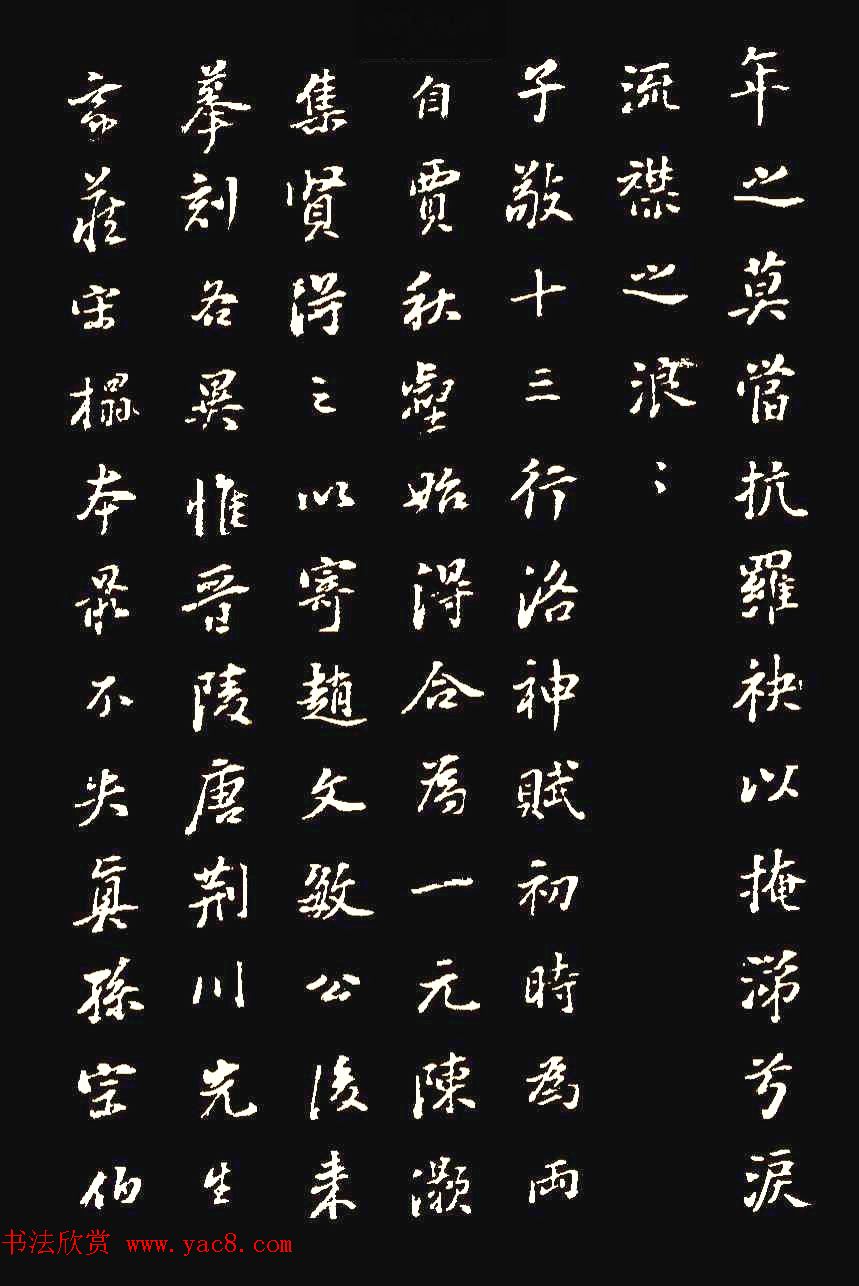 年之莫當抗羅袂以掩涕兮淚
流襟之浪〻
子敬十三行洛神賦初時為兩
自賈秋壑始得合為一元陳灝
集賢得之以寄趙文敏公後来
摹刻各異惟晋陵唐荆川先生
家藏宋榻本最不失真孫宗伯
书法欣赏 www.yac8.com